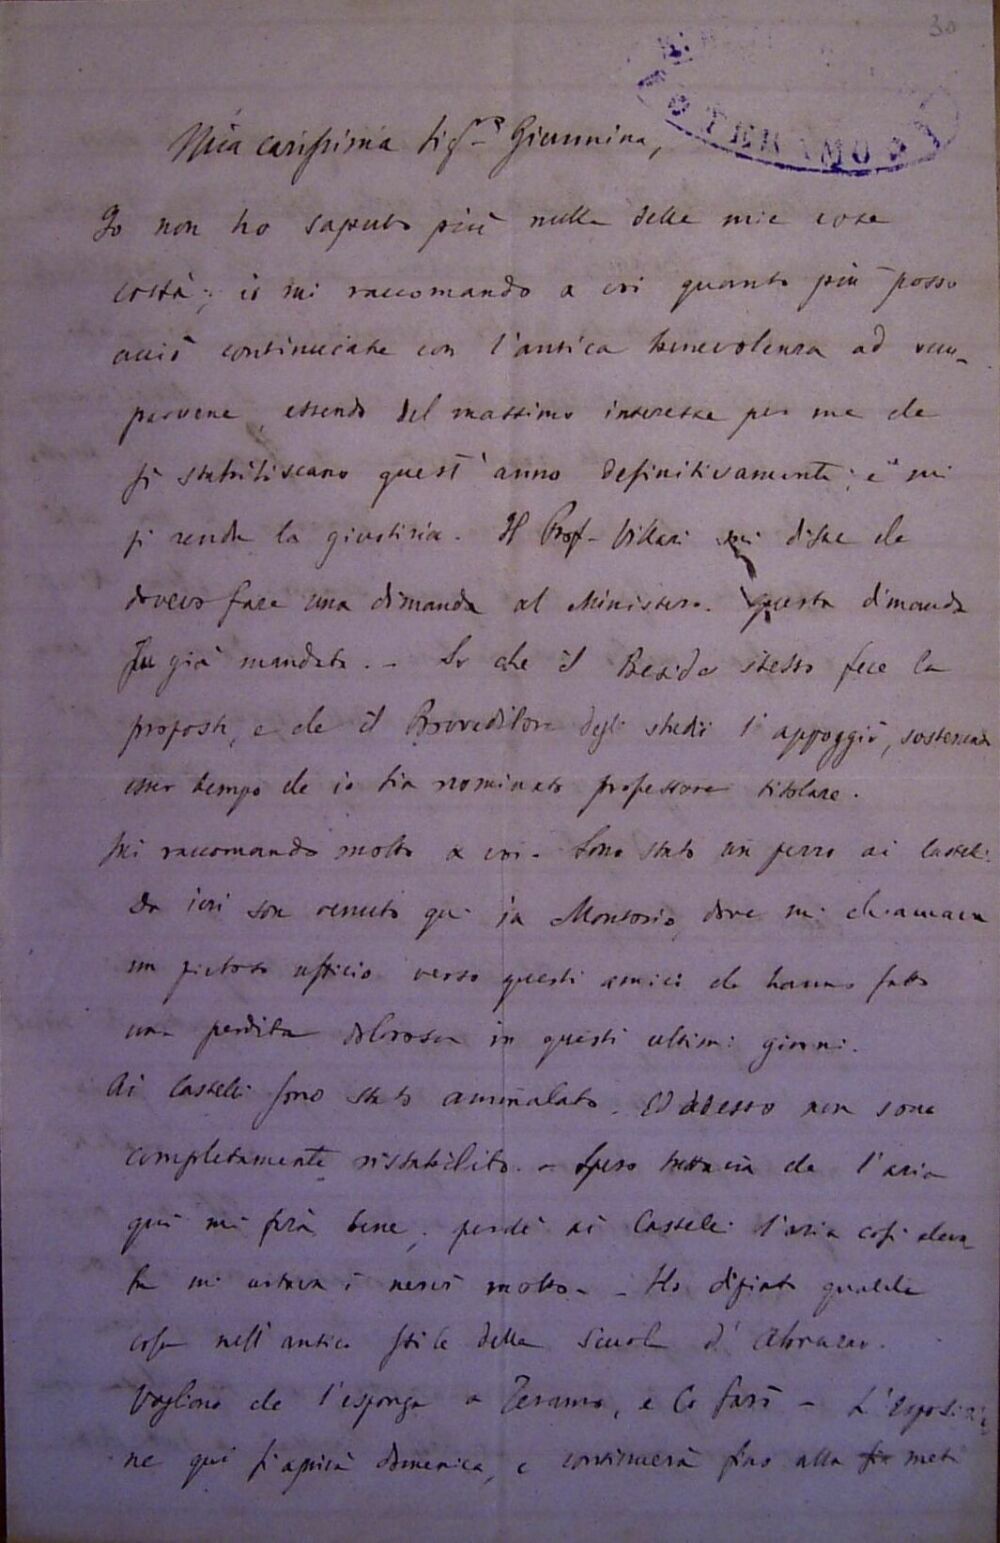 30
TERAMO
Mia carissima Sig.ra Giannina,
Io non ho saputo più nulla delle mie cose
costà; io mi raccomando a voi quanto più posso
acciò continuiate con l'antica benevolenza ad occu-
parvene, essendo del massimo interesse per me che
si stabiliscano quest'anno definitivamente; e mi
si renda la giustizia. Il Prof. Villari mi disse che
dovevo fare una dimanda al Ministero. Questa dimanda
fu già mandata. - So che il Preside stesso fece la
proposta, e che il Proveditore degli studii l'appoggiò, sostenendo
esser tempo che io sia nominato professore titolare.
Mi raccomando molto a voi. Sono stato un pezzo ai Castelli.
Da ieri son venuto qui in Montorio, dove mi chiamava
un pietoso ufficio verso questi amici che hanno fatto
una perdita dolorosa in questi ultimi giorni.
Ai Castelli sono stato ammalato. Ed adesso non sono
completamente ristabilito. - Spero tuttavia che l'aria
qui mi farà bene, perché ai Castelli l'aria così eleva
ta mi urtava i nervi molto. - Ho dipinto qualche
cosa nell'antico stile della Scuola d'Abruzzo.
Vogliono che l'esponga a Teramo, e lo farò - L'Esposizio
ne qui s'aprirà domenica, e continuerà fino alla metà